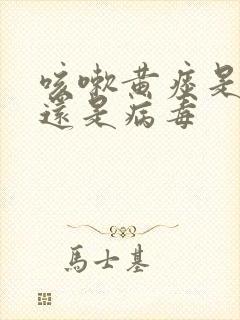 咳嗽黄痰是
還是病毒
馬士基